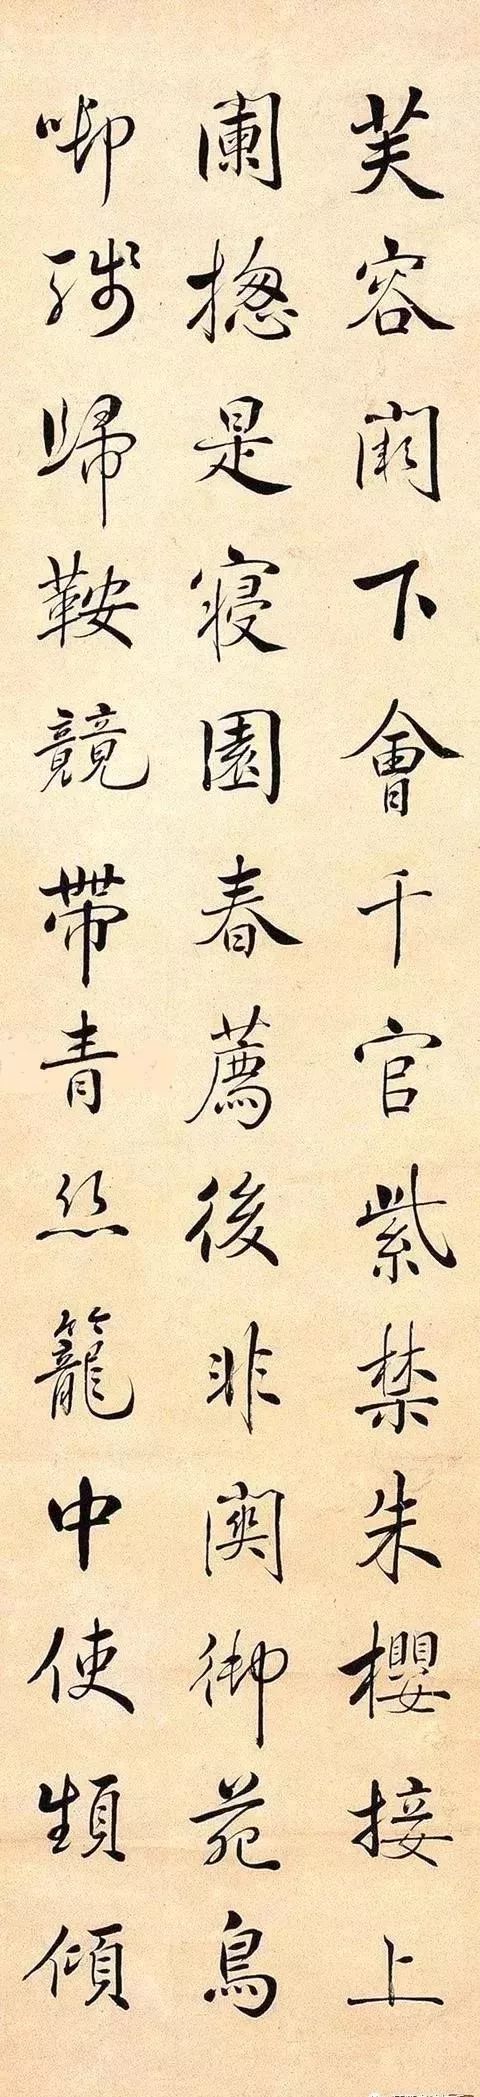 芙容闕下會千官紫禁朱櫻接上
闌摠是寝園春薦後非關御苑鳥
啣殘歸鞍競帶青絲籠中使頻傾